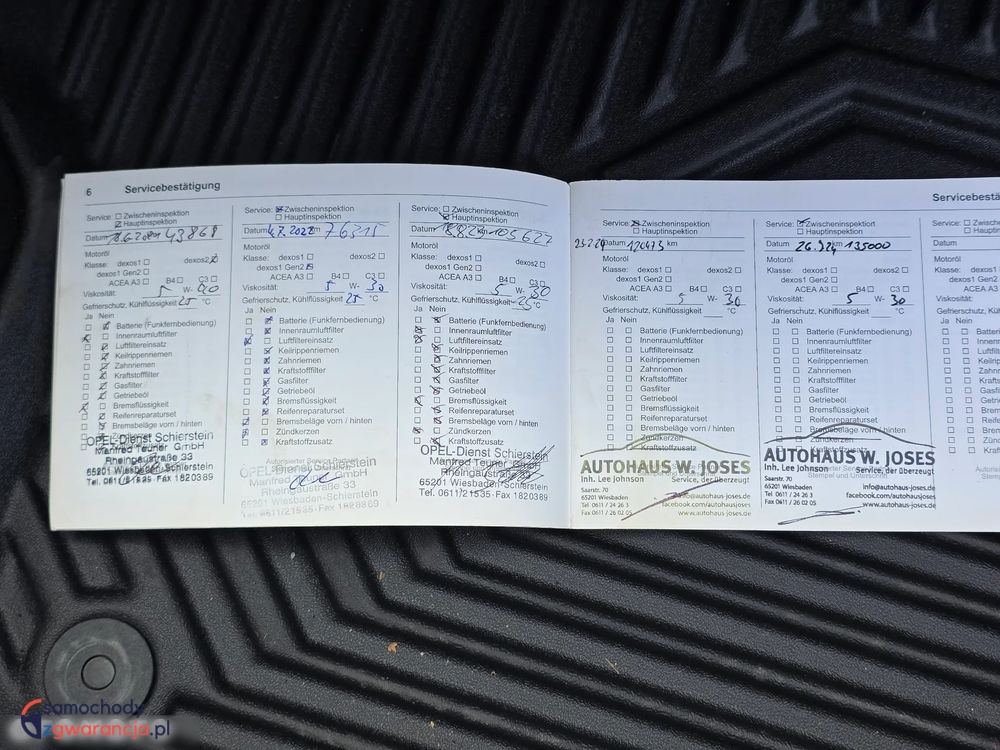 6 Servicebestätigung
Service: Zwischeninspektion
Hauptinspektion
Datum 43868
Motoröl
Klasse: dexos1 dexos2
dexos1 Gen2
ACEA A3 B4 C3
Viskosität: 5 W-
Gefrierschutz, Kühlflüssigkeit 25 °C
Ja Nein
Batterie (Funkfernbedienung)
Innenraumluftfilter
Luftfiltereinsatz
Keilrippenriemen
Zahnriemen
Kraftstofffilter
Gasfilter
Getriebeöl
Bremsflüssigkeit
Reifenreparaturset
Bremsbeläge vorn / hinten
OPEL-Dienst Schierstein
Manfred Teuner GmbH
Rheingaustraße 33
65201 Wiesbaden-Schierstein
Tel. 0611/21535-Fax 1820389
Service: Zwischeninspektion
Hauptinspektion
Datum 4.7.2022 km 76315
Motoröl
Klasse: dexos1 dexos2
dexos1 Gen2
ACEA A3 B4 C3
Viskosität: 5 W- 30
Gefrierschutz, Kühlflüssigkeit 25 °C
Ja Nein
Batterie (Funkfernbedienung)
Innenraumluftfilter
Luftfiltereinsatz
Keilrippenriemen
Zahnriemen
Kraftstofffilter
Gasfilter
Getriebeöl
Bremsflüssigkeit
Reifenreparaturset
Bremsbeläge vorn / hinten
Zündkerzen
Kraftstoffzusatz
Autorisierter Service Partner
OPEL-Dienst Schierstein
Manfred Teuner GmbH
Rheingaustraße 33
65201 Wiesbaden-Schierstein
Service: Zwischeninspektion
Hauptinspektion
Datum km 105627
Motoröl
Klasse: dexos1 dexos2
dexos1 Gen2
ACEA A3 B4 C3
Viskosität: 5 W- 30
Gefrierschutz, Kühlflüssigkeit -25 °C
Ja Nein
Batterie (Funkfernbedienung)
Innenraumluftfilter
Luftfiltereinsatz
Keilrippenriemen
Zahnriemen
Kraftstofffilter
Gasfilter
Getriebeöl
Bremsflüssigkeit
Reifenreparaturset
Bremsbeläge vorn / hinten
Zündkerzen
Kraftstoffzusatz
OPEL-Dienst Schierstein
Manfred Teuner GmbH
Rheingaustraße
65201 Wiesbaden-Schierstein
Tel. 0611/21535-Fax 1820389
Servicebestä
Service: Zwischeninspektion
Hauptinspektion
23.2.24 Datum 120473 km
Motoröl
Klasse: dexos1 dexos2
dexos1 Gen2
ACEA A3 B4 C3
Viskosität: 5 W- 30
Gefrierschutz, Kühlflüssigkeit °C
Ja Nein
Batterie (Funkfernbedienung)
Innenraumluftfilter
Luftfiltereinsatz
Keilrippenriemen
Zahnriemen
Kraftstofffilter
Gasfilter
Getriebeöl
Bremsflüssigkeit
Reifenreparaturset
Bremsbeläge vorn / hinten
Zündkerzen
Kraftstoffzusatz
AUTOHAUS W. JOSES
Inh. Lee Johnson Service, der überzeugt
Saarstr. 70
65201 Wiesbaden
Tel 0611 / 24 26 3 info@autohaus-joses.de
Fax 0611 / 26 02 05 facebook.com/autohausjoses
www.autohaus-joses.de
Service: Zwischeninspektion
Hauptinspektion
Datum 26.9.24 135000
Motoröl
Klasse: dexos1 dexos2
dexos1 Gen2
ACEA A3 B4 C3
Viskosität: 5 W- 30
Gefrierschutz, Kühlflüssigkeit °C
Ja Nein
Batterie (Funkfernbedienung)
Innenraumluftfilter
Luftfiltereinsatz
Keilrippenriemen
Zahnriemen
Kraftstofffilter
Gasfilter
Getriebeöl
Bremsflüssigkeit
Reifenreparaturset
Bremsbeläge vorn / hinten
Zündkerzen
Kraftstoffzusatz
AUTOHAUS W. JOSES
Inh. Lee Johnson Service, der überzeugt
Stempel und Unterschrift
Saarstr. 70
65201 Wiesbaden info@autohaus-joses.de
Tel 0611 / 24 26 3 facebook.com/autohausjoses
Fax 0611 / 26 02 05 www.autohaus-joses.de
Service:
Datum
Motoröl
Klasse: dexos1
dexos1 Gen2
ACEA A3
Viskosität:
Gefrierschutz, Kühl
Ja Nein
samochody
zgwarancja.pl